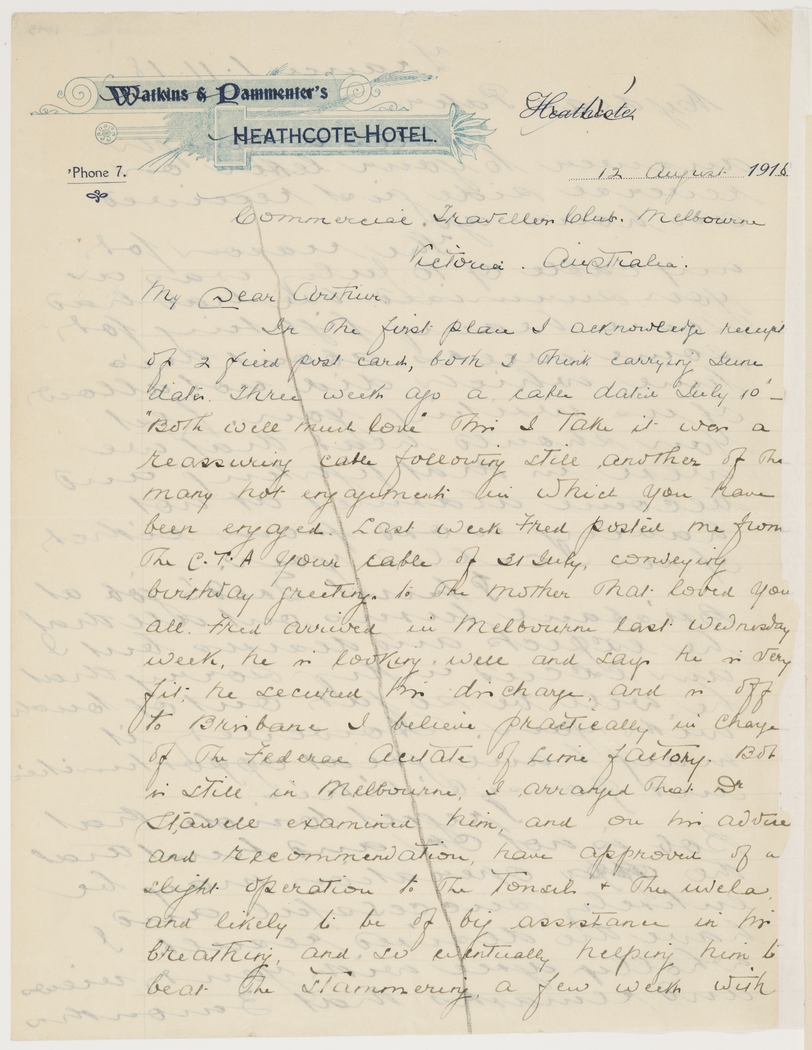 Watkins & Pammenter's
HEATHCOTE HOTEL.
Heathcote,
'Phone 7.
12 August 1918
Commercial Travellers Club. Melbourne
Victoria. Australia.
My Dear Arthur
In the first place I acknowledge receipt
of 2 field post cards, both I think carrying June
dates. Three weeks ago a cable dated July 10th _
"Both well much love" this I take it was a
reassuring cable following still another of the
many hot engagements in which you have
been engaged. Last week Fred posted me from
the C.T.A your cable of 31 July, conveying
birthday greetings to the mother that loved you
all. Fred arrived in Melbourne last Wednesday
week, he is looking well and says he is very
fit, he secured his discharge, and is off
to Brisbane I believe practically in charge
of the Federal Acetate of Lime factory. Bob
is still in Melbourne, I arranged that Dr
Stawell examined him, and on his advice
and recommendation, have approved of a
slight operation to the Tonsils + the uvela
and likely to be of big assistance in his
breathing, and so eventually helping him to
beat the stammering, a few weeks with